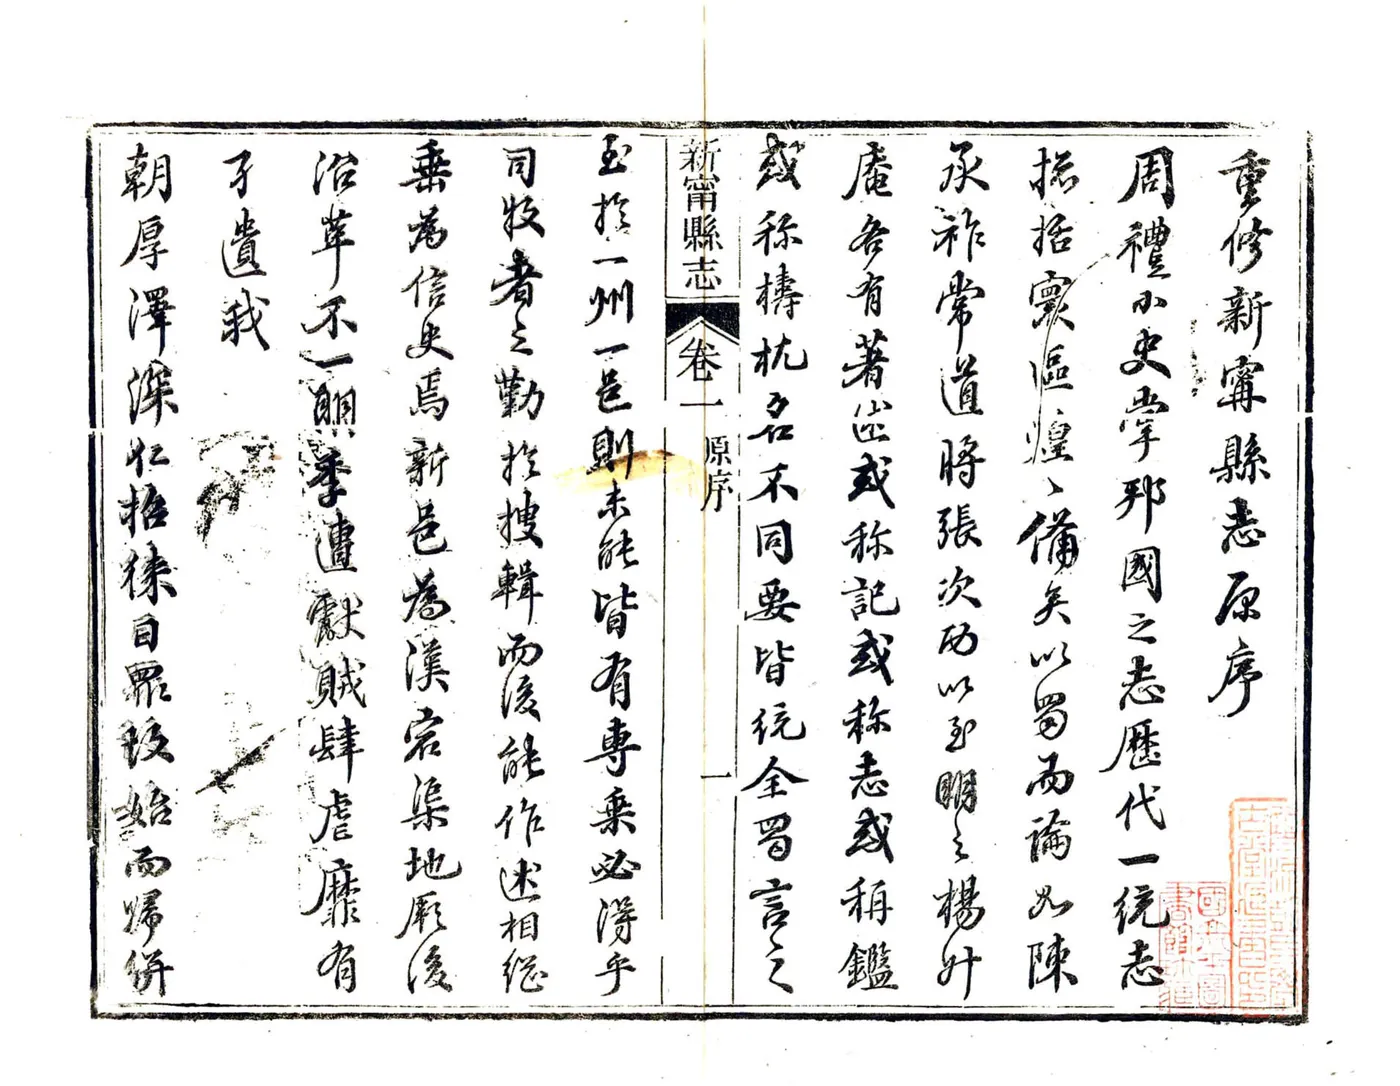 重修新寧縣志原序
周禮小史掌邦國之志歷代一統志
捃括寰區煌〻備矣以蜀而論如陳
承祚常道將張次功以至明之楊升
庵各有著出或称記或称志或稱鑑
或称檮杌名不同要皆統全蜀言之
新甯縣志
卷一
原序
一
至於一州一邑則未能皆有專乘必得乎
司牧者之勤於搜輯而後能作述相繼
乘為信史焉新邑為漢宕渠地厥後
沿革不一明季遭獻賊肆虐靡有
孑遺我
朝厚澤深仁招徕自羆攷始而歸併